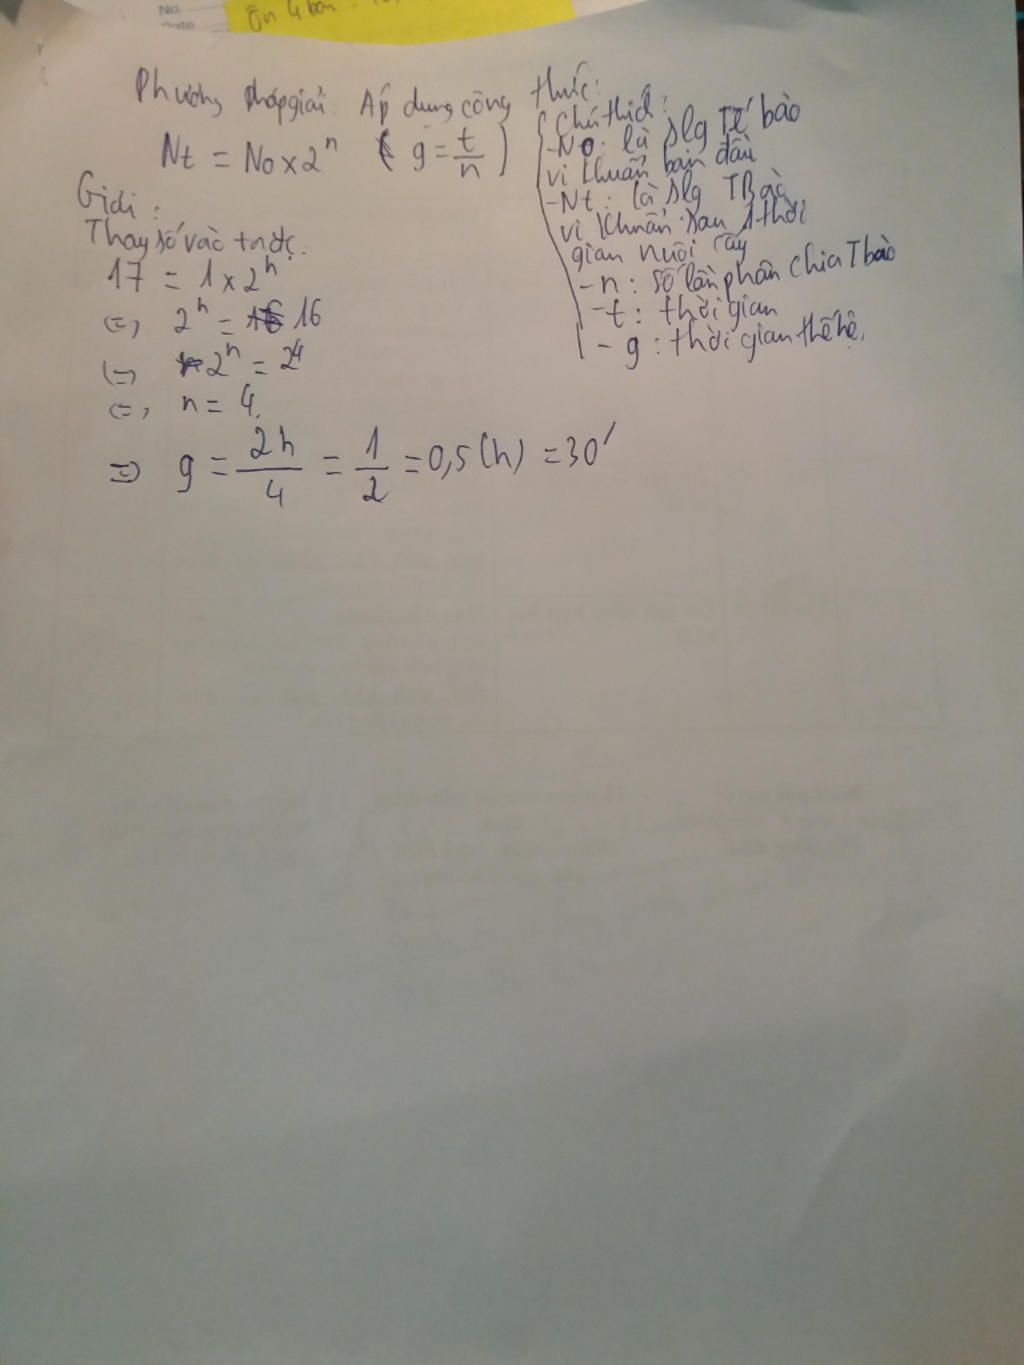 No.
Date
Ôn 4 bài
Phương pháp giải: Áp dụng công thức:
Nt = No x 2^n ( g = t/n )
Chú thích:
- No: là slg Tế bào
vi khuẩn ban đầu
- Nt: là slg TBào
vi khuẩn sau 1 thời
gian nuôi cấy
- n: số lần phân chia Tbào
- t: thời gian
- g: thời gian thế hệ.
Giải:
Thay số vào ta đc.
17 = 1 x 2^n
(=) 2^n = 16
(=) 2^n = 2^4
(=) n = 4.
=) g = 2h/4 = 1/2 = 0,5 (h) = 30'